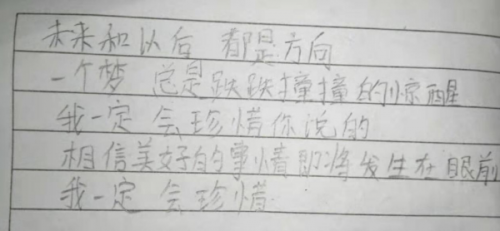 未来和以后 都是方向
一个梦 总是跌跌撞撞的惊醒
我一定 会珍惜你说的
相信美好的事情即将发生在眼前
我一定 会珍惜